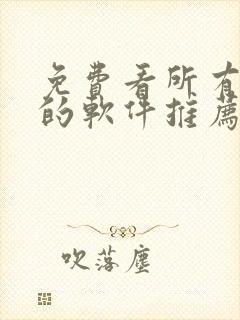 免費看所有
的軟件推薦
吹落塵